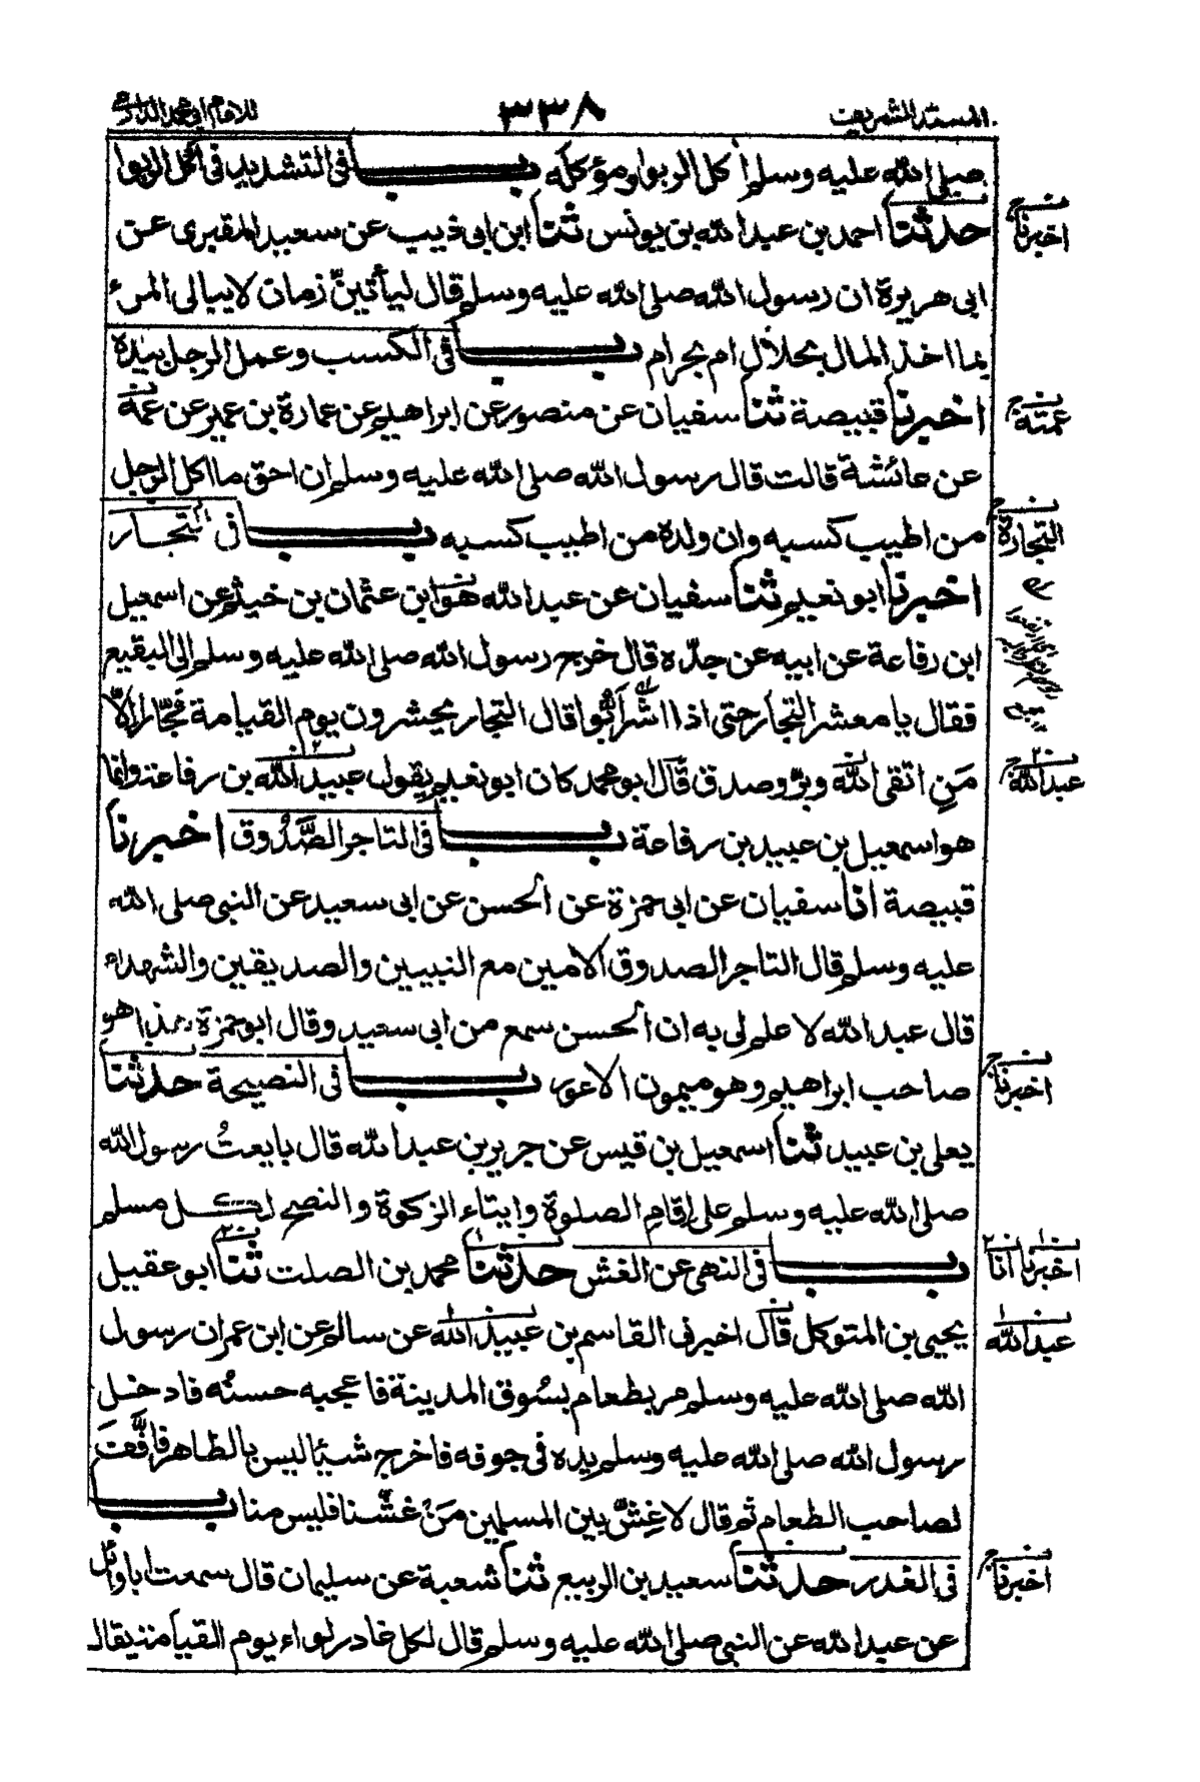 المسند الشريف ٣٣٨ للامام ابي محمد الدارمي
صلى الله عليه وسلم أكل الربوا ومؤكله باب في التشديد في اكل الربوا
حدثنا احمد بن عبد الله بن يونس ثنا ابن ابى ذيب عن سعيد المقبرى عن
اخبرنا
ابى هريرة ان رسول الله صلى الله عليه وسلم قال ليأتينّ زمان لا يبالى المرء
بما اخذ المال بحلال ام بحرام باب فى الكسب وعمل الرجل بيده
اخبرنا قبيصة ثنا سفيان عن منصور عن ابراهيم عن عمارة بن عمير عن عمة
عمته
عن عائشة قالت قال رسول الله صلى الله عليه وسلم ان احق ما اكل الرجل
من اطيب كسبه وان ولده من اطيب كسبه باب فى التجار
التجارة
اخبرنا ابو نعيم ثنا سفيان عن عبد الله هو ابن عثمان بن خيثم عن اسمعيل
ابن رفاعة عن ابيه عن جده قال خرج رسول الله صلى الله عليه وسلم الى البقيع
فقال يا معشر التجار حتى اذا اشرأبّوا قال التجار يحشرون يوم القيامة فجّارا الّا
مَنِ اتقى الله وبرّ وصدق قال ابو محمد كان ابو نعيم يقول عبيد الله بن رفاعة وانما
عبد الله
هو اسمعيل بن عبيد بن رفاعة باب فى التاجر الصَّدُوق اخبرنا
قبيصة انا سفيان عن ابى حمزة عن الحسن عن ابى سعيد عن النبى صلى الله
عليه وسلم قال التاجر الصدوق الامين مع النبيين والصديقين والشهداء
قال عبد الله لا علم لى به ان الحسن سمع من ابى سعيد وقال ابو حمزة هذا هو
صاحب ابراهيم وهو ميمون الاعور باب فى النصيحة حدثنا
اخبرنا
يعلى بن عبيد ثنا اسمعيل بن قيس عن جرير بن عبد الله قال بايعتُ رسول الله
صلى الله عليه وسلم على اقامِ الصلوة وايتاء الزكوة والنصح لكل مسلم
باب فى النهى عن الغش حدثنا محمد بن الصلت ثنا ابو عقيل
اخبرنا انا
يحيى بن المتوكل قال اخبرنى القاسم بن عبيد الله عن سالم عن ابن عمر ان رسول
عبد الله
الله صلى الله عليه وسلم مر بطعام بسُوق المدينة فاعجبه حسنُه فادخل
رسول الله صلى الله عليه وسلم يده فى جوفه فاخرج شيئا ليس بالظاهر فافَّفَ
لصاحب الطعام ثم قال لا غِشَّ بين المسلمين مَنْ غشّنا فليس منا باب
فى الغدر حدثنا سعيد بن الربيع ثنا شعبة عن سليمان قال سمعت ابا وائل
اخبرنا
عن عبد الله عن النبى صلى الله عليه وسلم قال لكل غادر لواء يوم القيامة يقال